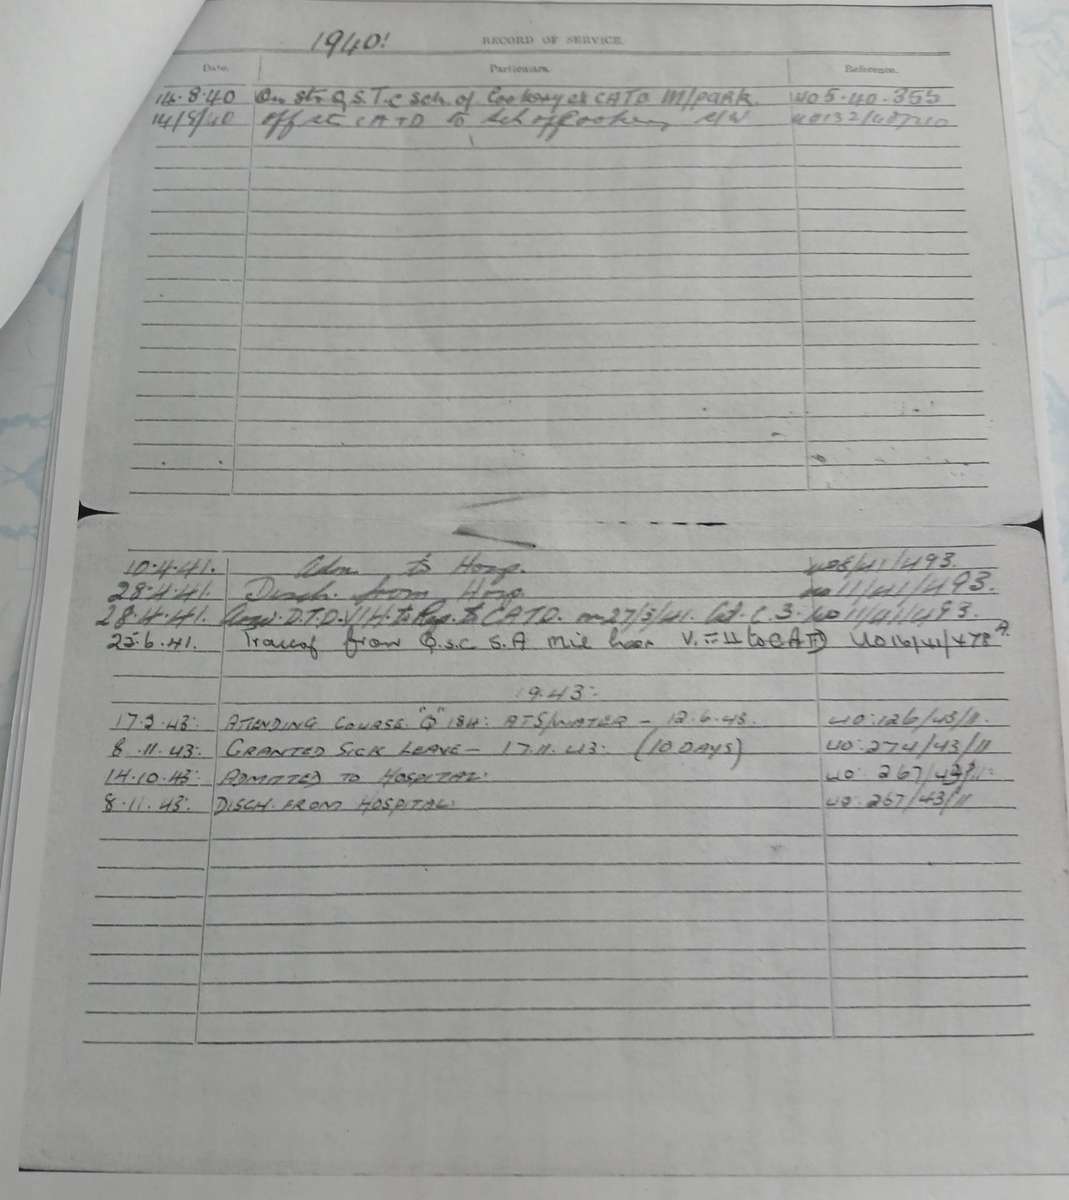 1940!
RECORD OF SERVICE.
Date. Particulars. Reference.
14.8.40 On Str Q.S.T.C Sch. of Cookery ex CATD M/park. UO 5.40.355
14/8/40 off str CATD to Sch of Cookery
10.4.41. Adm. to Hosp. 8/41/493.
28.4.41. Disch. from Hosp. UO 11/41/493.
28.4.41. D.T.D.V/H. to Rep. to CATD. on 27/3/41. Cat. C. 3. UO 11/41/493.
25.6.41. Transf from Q.S.C S.A Mil V. to CATD UO 16/41/478
1943:
17.2.43: ATENDING COURSE. "Q" 184: ATS/WATER – 12.6.43. UO:126/43/11.
8.11.43: GRANTED SICK LEAVE – 17.11.43: (10 DAYS) UO:274/43/11
14.10.43: ADMITTED TO HOSPITAL: UO: 267/43/11:
8.11.43: DISCH. FROM HOSPITAL: UO: 267/43/11